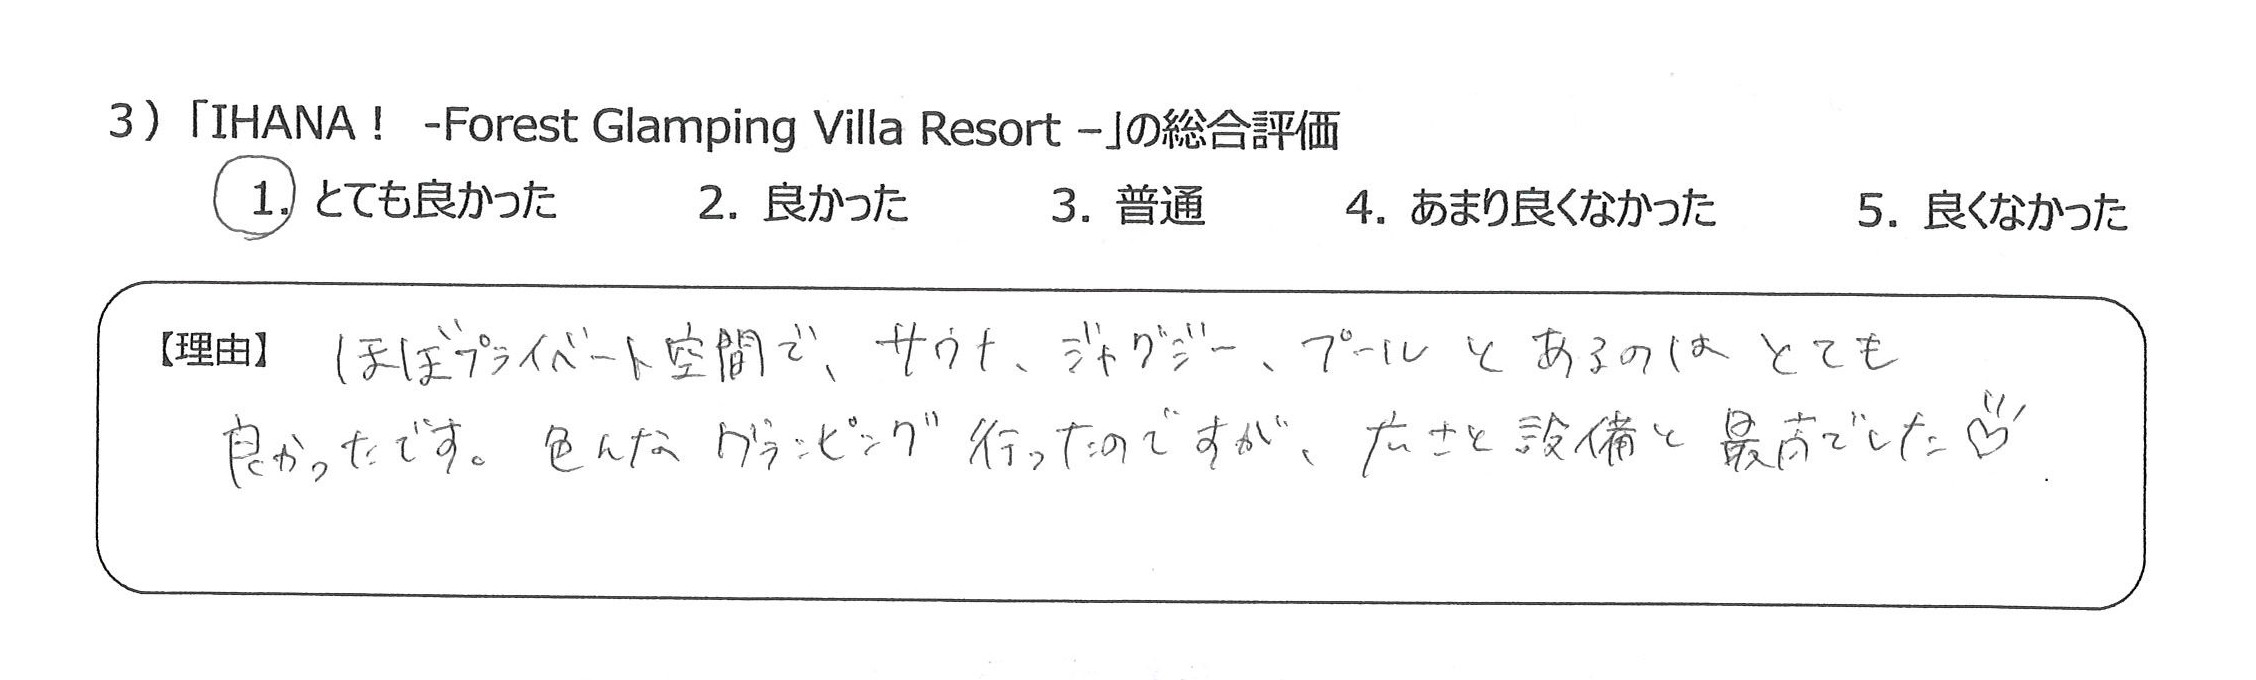 3）「IHANA！ -Forest Glamping Villa Resort –」の総合評価
1. とても良かった 2. 良かった 3. 普通 4. あまり良くなかった 5. 良くなかった
【理由】 ほぼプライベート空間で、サウナ、ジャグジー、プールとあるのはとても
良かったです。色んなグランピング行ったのですが、広さと設備と最高でした♡